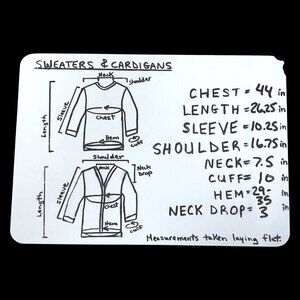 SWEATERS & CARDIGANS
Neck
Shoulder
Sleeve
Length
Chest
Hem
Cuff
Shoulder
Neck
Neck Drop
Sleeve
Length
Chest
Hem
Cuff
CHEST = 44 in
LENGTH = 26.25 in
SLEEVE = 10.25 in
SHOULDER = 16.75 in
NECK = 7.5 in
CUFF = 10 in
HEM = 29-35 in
NECK DROP = 3 in
Measurements taken laying flat.